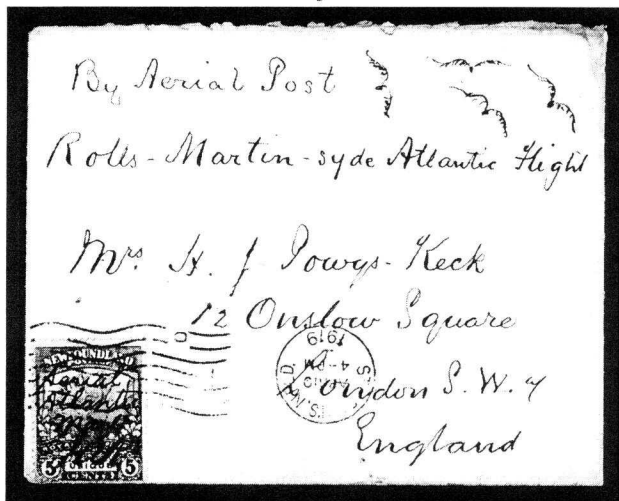 By Aerial Post
Rolls-Martin-syde Atlantic Flight
Mrs. H. J Powys-Keck
12 Onslow Square
London S.W. 7
England
NEWFOUNDLAND
Aerial
Atlantic
5 5
CENTS
4-PM
1919